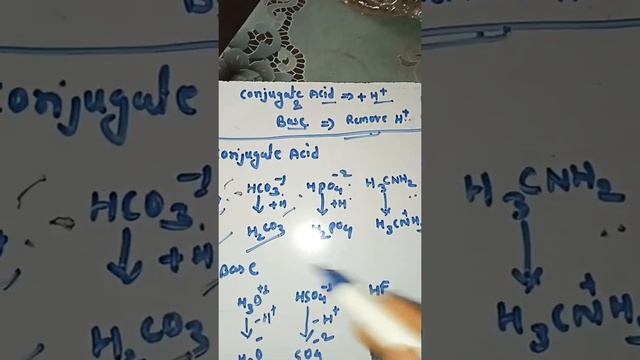 Conjugate Acid ⇒ + H⁺
&
Base ⇒ Remove H⁺
Conjugate Acid
HCO₃⁻¹ HPO₄⁻² H₃CNH₂
↓+H ↓+H ↓
H₂CO₃ H₂PO₄ H₃CN⁺H₃
Base
H₃O⁺¹ HSO₄⁻¹ HF
↓-H⁺ ↓-H⁺